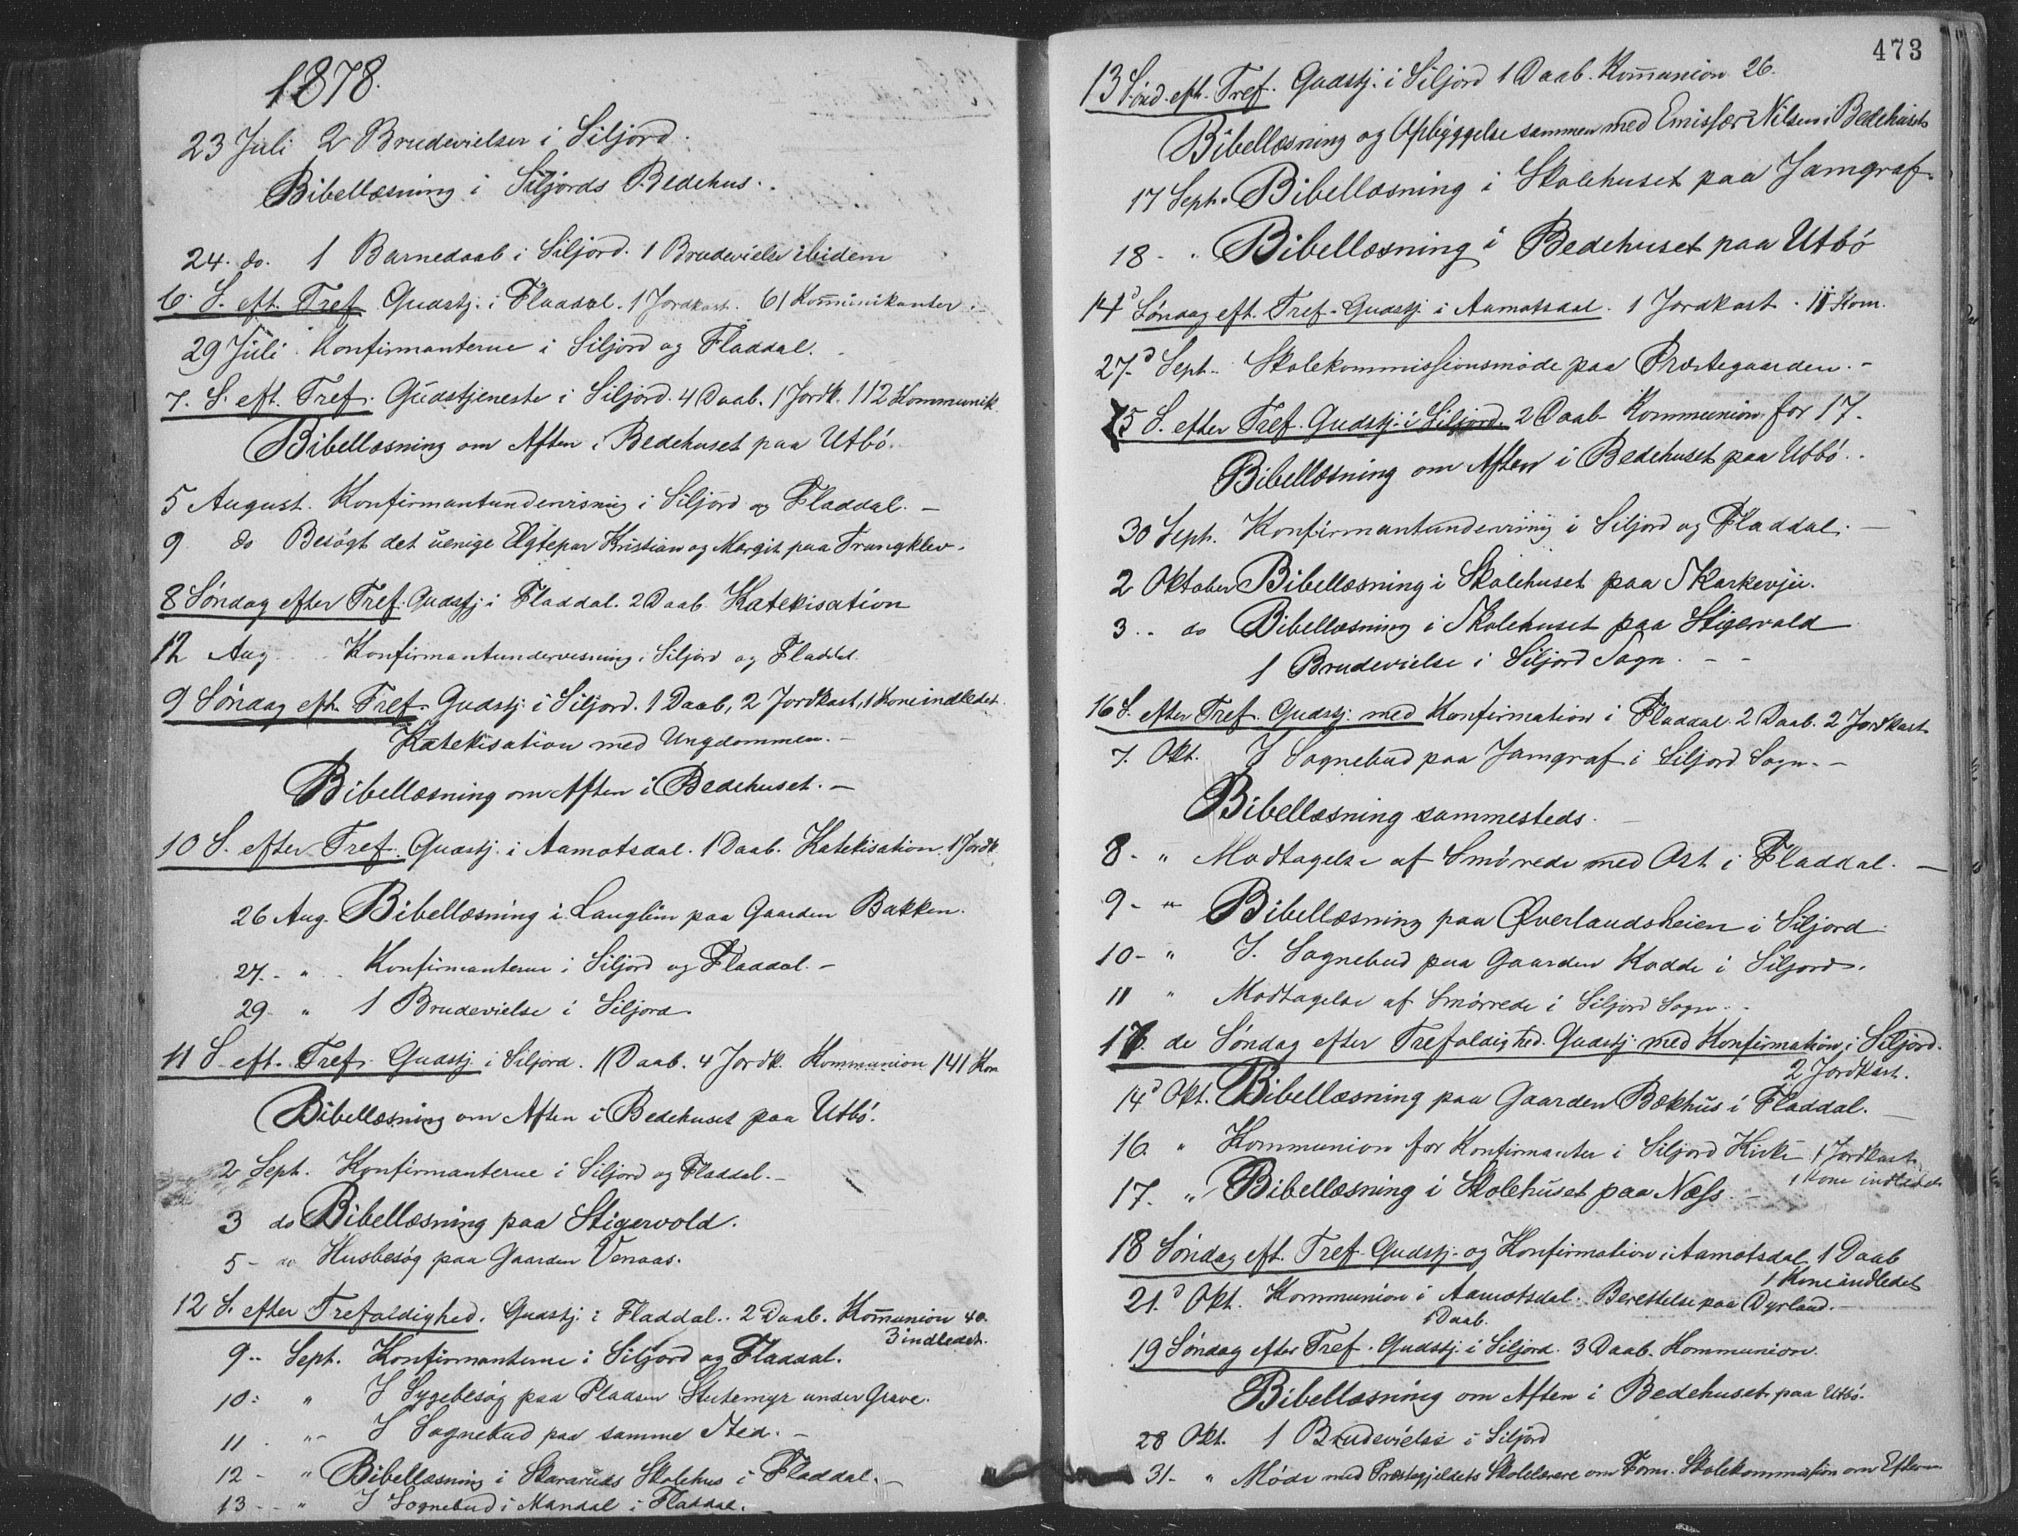 1878.
23 Juli 2 Brudevielser i Siljord.
Bibellæsning i Siljords Bedehus.
24. do. 1 Barnedaab i Siljord. 1 Brudevielse ibidem
6. S. eft. Tref. Gudstj. i Fladdal. 1 Jordkast. 61 Kom̄unikanter.
29 Juli. Konfirmanterne i Siljord og Fladdal.
7. S. eft. Tref. Gudstjeneste i Siljord. 4 Daab. 1 Jordk. 112 Kommunik.
Bibellæsning om Aften i Bedehuset paa Utbö.
5 August. Konfirmantundervisning i Siljord og Fladdal. —
9 do Besøgt det uenige Egtepar Kristian og Margit paa Trangklev.
8 Søndag efter Tref. Gudstj. i Fladdal. 2 Daab. Katekisation
12 Aug. Konfirmantundervisning i Siljord og Fladdal.
9 Søndag eft. Tref. Gudstj. i Siljord. 1 Daab, 2 Jordkast, 1 Kone indledet.
Katekisation med Ungdommen. —
Bibellæsning om Aften i Bedehuset. —
10 S. efter Tref. Gudstj. i Aamotsdal. 1 Daab. Katekisation. 1 Jordk.
26 Aug. Bibellæsning i Langlim paa Gaarden Bakken.
27. - " Konfirmanterne i Siljord og Fladdal. —
29 - " 1 Brudevielse i Siljord.
11 S. eft. Tref. Gudstj. i Siljord. 1 Daab. 4 Jordk. Kommunion 141 Kom
Bibellæsning om Aften i Bedehuset paa Utbö.
2 Sept. Konfirmanterne i Siljord og Fladdal. —
3 do Bibellæsning paa Stigervold.
5 - do Husbesøg paa Gaarden Venaas.
12 S. efter Trefoldighed. Gudstj. i Fladdal. 2 Daab. Kom̄union 40.
3 indledet.
9 - Sept. Konfirmanterne i Siljord og Fladdal.
10 - " I Sygebesøg paa Pladsen under Grave.
11 - " I Sognebud paa samme Sted. —
12 - " Bibellæsning i Skolehus i Fladdal. —
13 - " I Sognebud i Mandal i Fladdal.
473
13 Sönd. eft. Tref. Gudstj. i Siljord 1 Daab. Kom̄union 26.
Bibellæsning og Opbyggelse sammen med Emissær Nilsen i Bedehuset
17 Sept. Bibellæsning i Skolehuset paa Jamgraf.
18 - " Bibellæsning i Bedehuset paa Utbö
14d Søndag eft. Tref. Gudstj. i Aamotsdal. 1 Jordkast. 11 Kom.
27.d Sept. Skolekommissionsmöde paa Præstegaarden. —
15 S. efter Tref. Gudstj. i Siljord. 2 Daab. Kommunion for 17.
Bibellæsning om Aften i Bedehuset paa Utbö.
30 Sept. Konfirmantundervisning i Siljord og Fladdal. —
2 Oktober Bibellæsning i Skolehuset paa Skarkevju.
3. - do Bibellæsning i Skolehuset paa Stigervold
1 Brudevielse i Siljord Sogn. — —
16 S. efter Tref. Gudstj. med Konfirmation i Fladdal. 2 Daab. 2 Jordkast
7. Okt. I Sognebud paa Jamgraf i Siljord Sogn. —
Bibellæsning sammesteds. —
8 - " Modtagelse af Smörrede med Ost i Fladdal. —
9 - " Bibellæsning paa Øverlandsheien i Siljord
10 - " I Sognebud paa Gaarden Kodde i Siljord.
11 " Modtagelse af Smörrede i Siljord Sogn. —
17. de Søndag efter Trefoldighed. Gudstj. med Konfirmation i Siljord.
2 Jordkast.
14d Okt. Bibellæsning paa Gaarden Bækhus i Fladdal. —
16. " Kommunion for Konfirmanter i Siljord Kirke 1 Jordkast.
1 Kone indledet
17. " Bibellæsning i Skolehuset paa Næss. —
18 Søndag eft. Tref. Gudstj. og Konfirmation i Aamotsdal. 1 Daab
1 Kone indledet
21.d Okt. Kommunion i Aamotsdal. Berettelse paa Dyrland. —
1 Daab.
19 Søndag efter Tref. Gudstj. i Siljord. 3 Daab. Kommunion.
Bibellæsning om Aften i Bedehuset paa Utbö.
28 Okt. 1 Brudevielse i Siljord
31 - " Möde med Præstegjeldets Skolelærere om Form. Skolekommission om Efterm